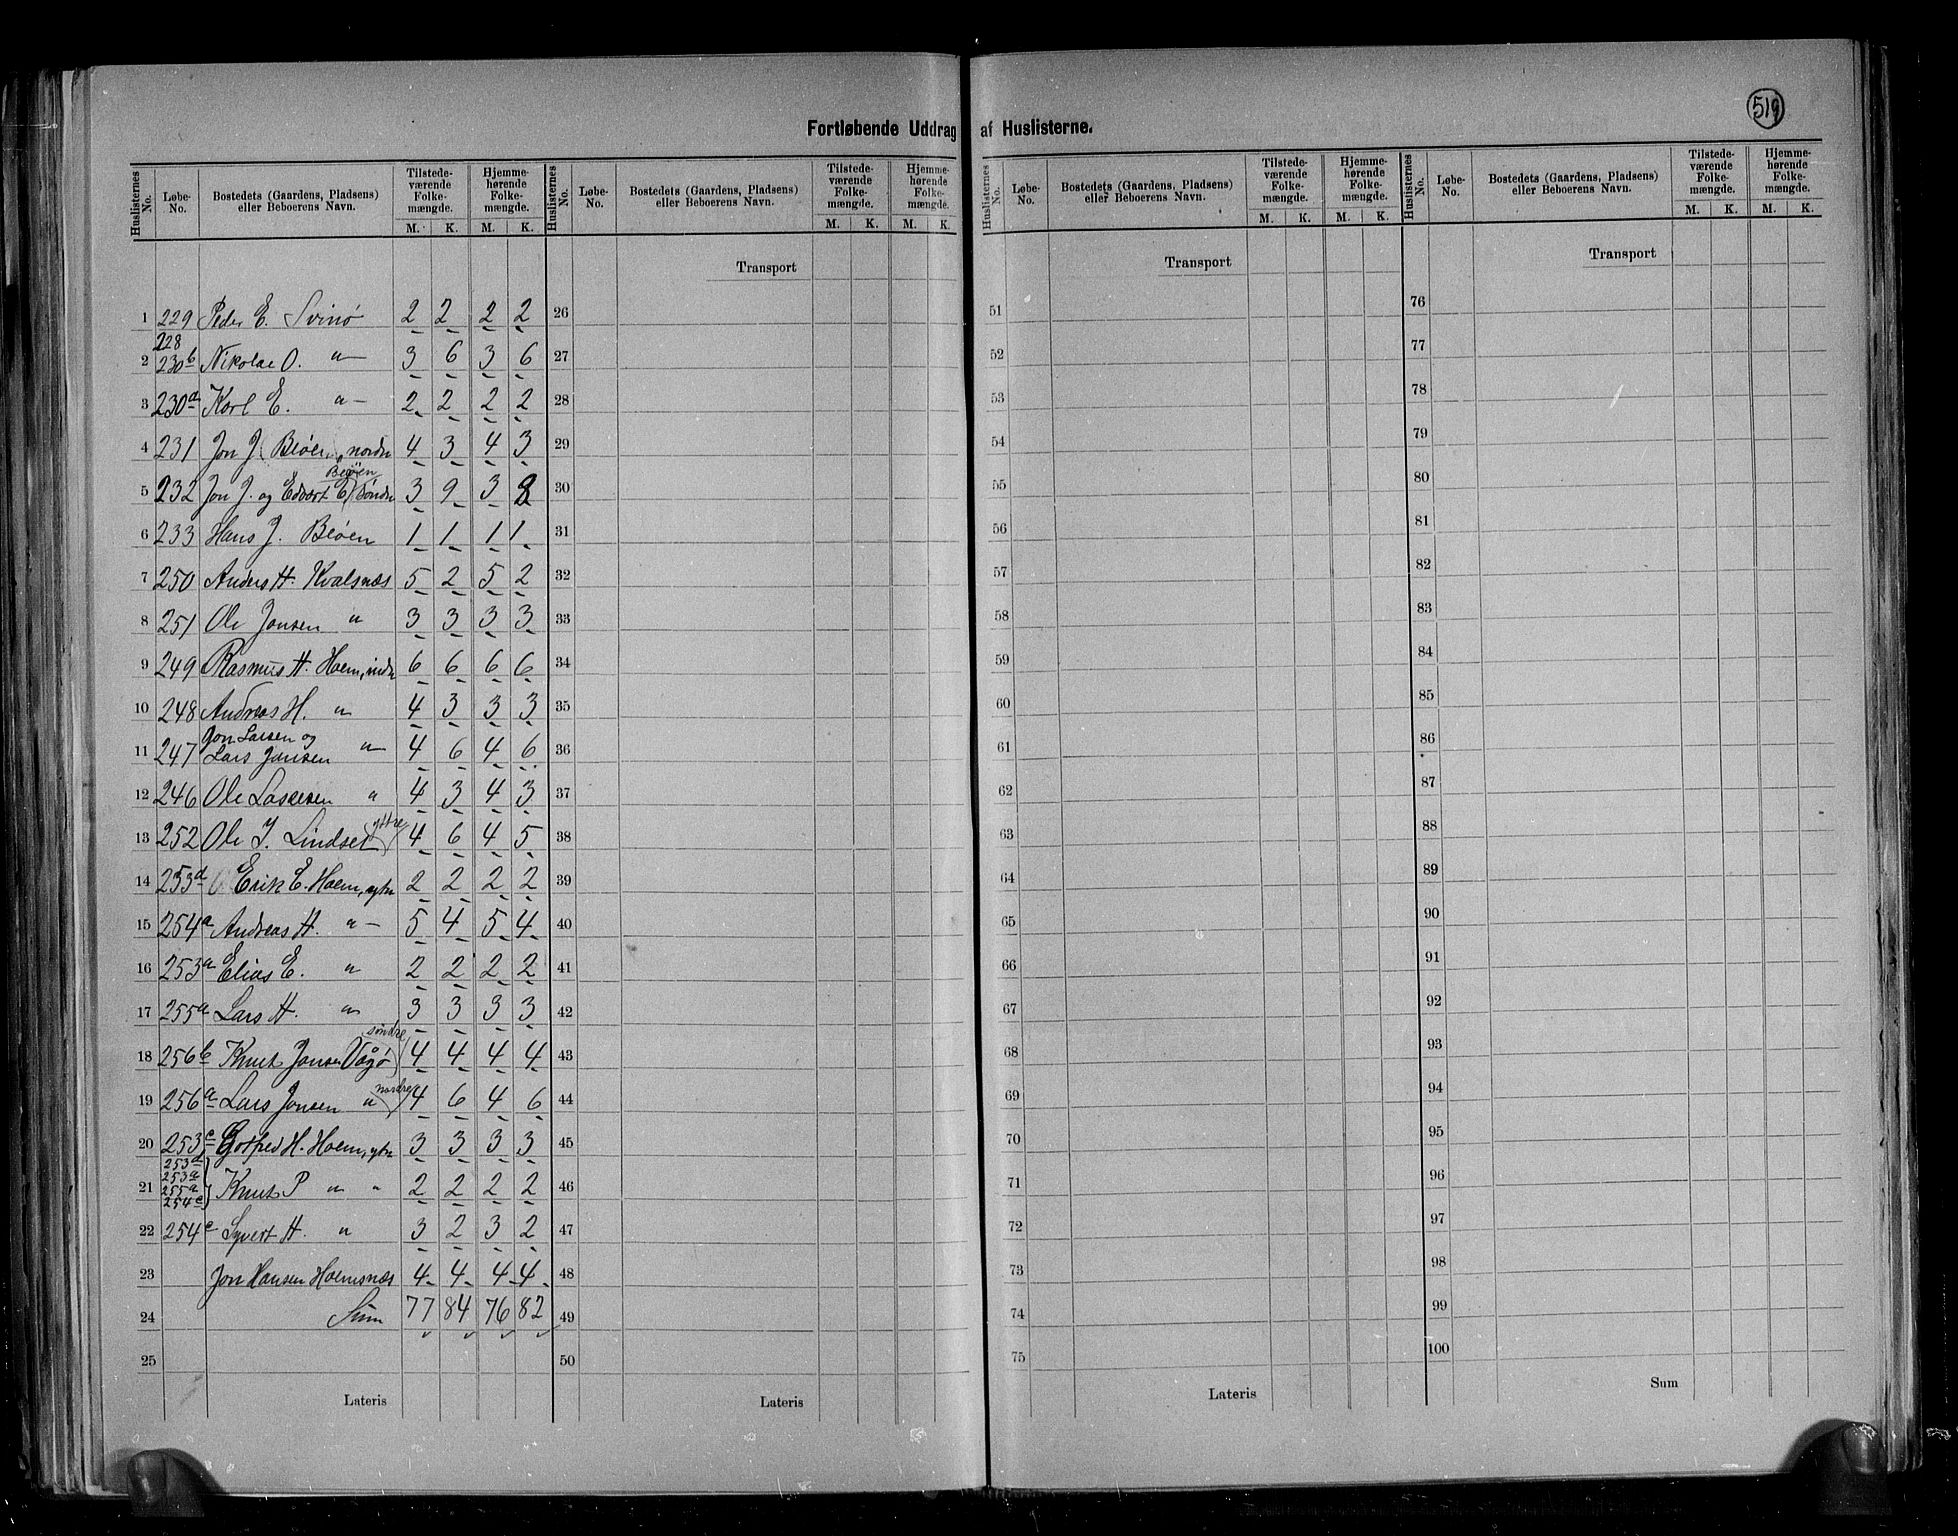 519
Fortløbende Uddrag af Huslisterne.
Huslisternes No. Løbe-No. Bostedets (Gaardens, Pladsens) eller Beboerens Navn. Tilstedeværende Folkemængde. M. K. Hjemmehørende Folkemængde. M. K.
Huslisternes No. Løbe-No. Bostedets (Gaardens, Pladsens) eller Beboerens Navn. Tilstedeværende Folkemængde. M. K. Hjemmehørende Folkemængde. M. K.
Huslisternes No. Løbe-No. Bostedets (Gaardens, Pladsens) eller Beboerens Navn. Tilstedeværende Folkemængde. M. K. Hjemmehørende Folkemængde. M. K.
Huslisternes No. Løbe-No. Bostedets (Gaardens, Pladsens) eller Beboerens Navn. Tilstedeværende Folkemængde. M. K. Hjemmehørende Folkemængde. M. K.
1 229 Peder E. Svinø 2 2 2 2
228
2 230b Nikolai O. " — 3 6 3 6
3 230a Karl E. " — 2 2 2 2
4 231 Jon J. Beøen, nordre 4 3 4 3
Beøen
5 232 Jon J. og Edvart E. søndre 3 9 3 8
6 233 Hans J. Beøen 1 1 1 1
7 250 Anders H. Kvalsnæs 5 2 5 2
8 251 Ole Jonsen " 3 3 3 3
9 249 Rasmus H. Hoem, indre 6 6 6 6
10 248 Andreas H. " 4 3 3 3
Jon Larsen og
11 247 Lars Jonsen " 4 6 4 6
12 246 Ole Lassesen " 4 3 4 3
yttre
13 252 Ole J. Lindset 4 6 4 5
14 253d Erik E. Hoem, ytre 2 2 2 2
15 254a Andreas H. " — 5 4 5 4
16 253a Elias E. " 2 2 2 2
17 255a Lars H. " 3 3 3 3
søndre
18 256b Knut Jonsen Vågø 4 4 4 4
nordre
19 256a Lars Jonsen " 4 6 4 6
20 253c Gotfred H. Hoem, ytre 3 3 3 3
253d
253a
21 255a Knut P " " 2 2 2 2
254c
22 254c Syvert H. " 3 2 3 2
23 Jon Hansen Hoemsnæs 4 4 4 4
24 Sum 77 84 76 82
25
Lateris
Transport
26
27
28
29
30
31
32
33
34
35
36
37
38
39
40
41
42
43
44
45
46
47
48
49
50
Lateris
Transport
51
52
53
54
55
56
57
58
59
60
61
62
63
64
65
66
67
68
69
70
71
72
73
74
75
Lateris
Transport
76
77
78
79
80
81
82
83
84
85
86
87
88
89
90
91
92
93
94
95
96
97
98
99
100
Sum